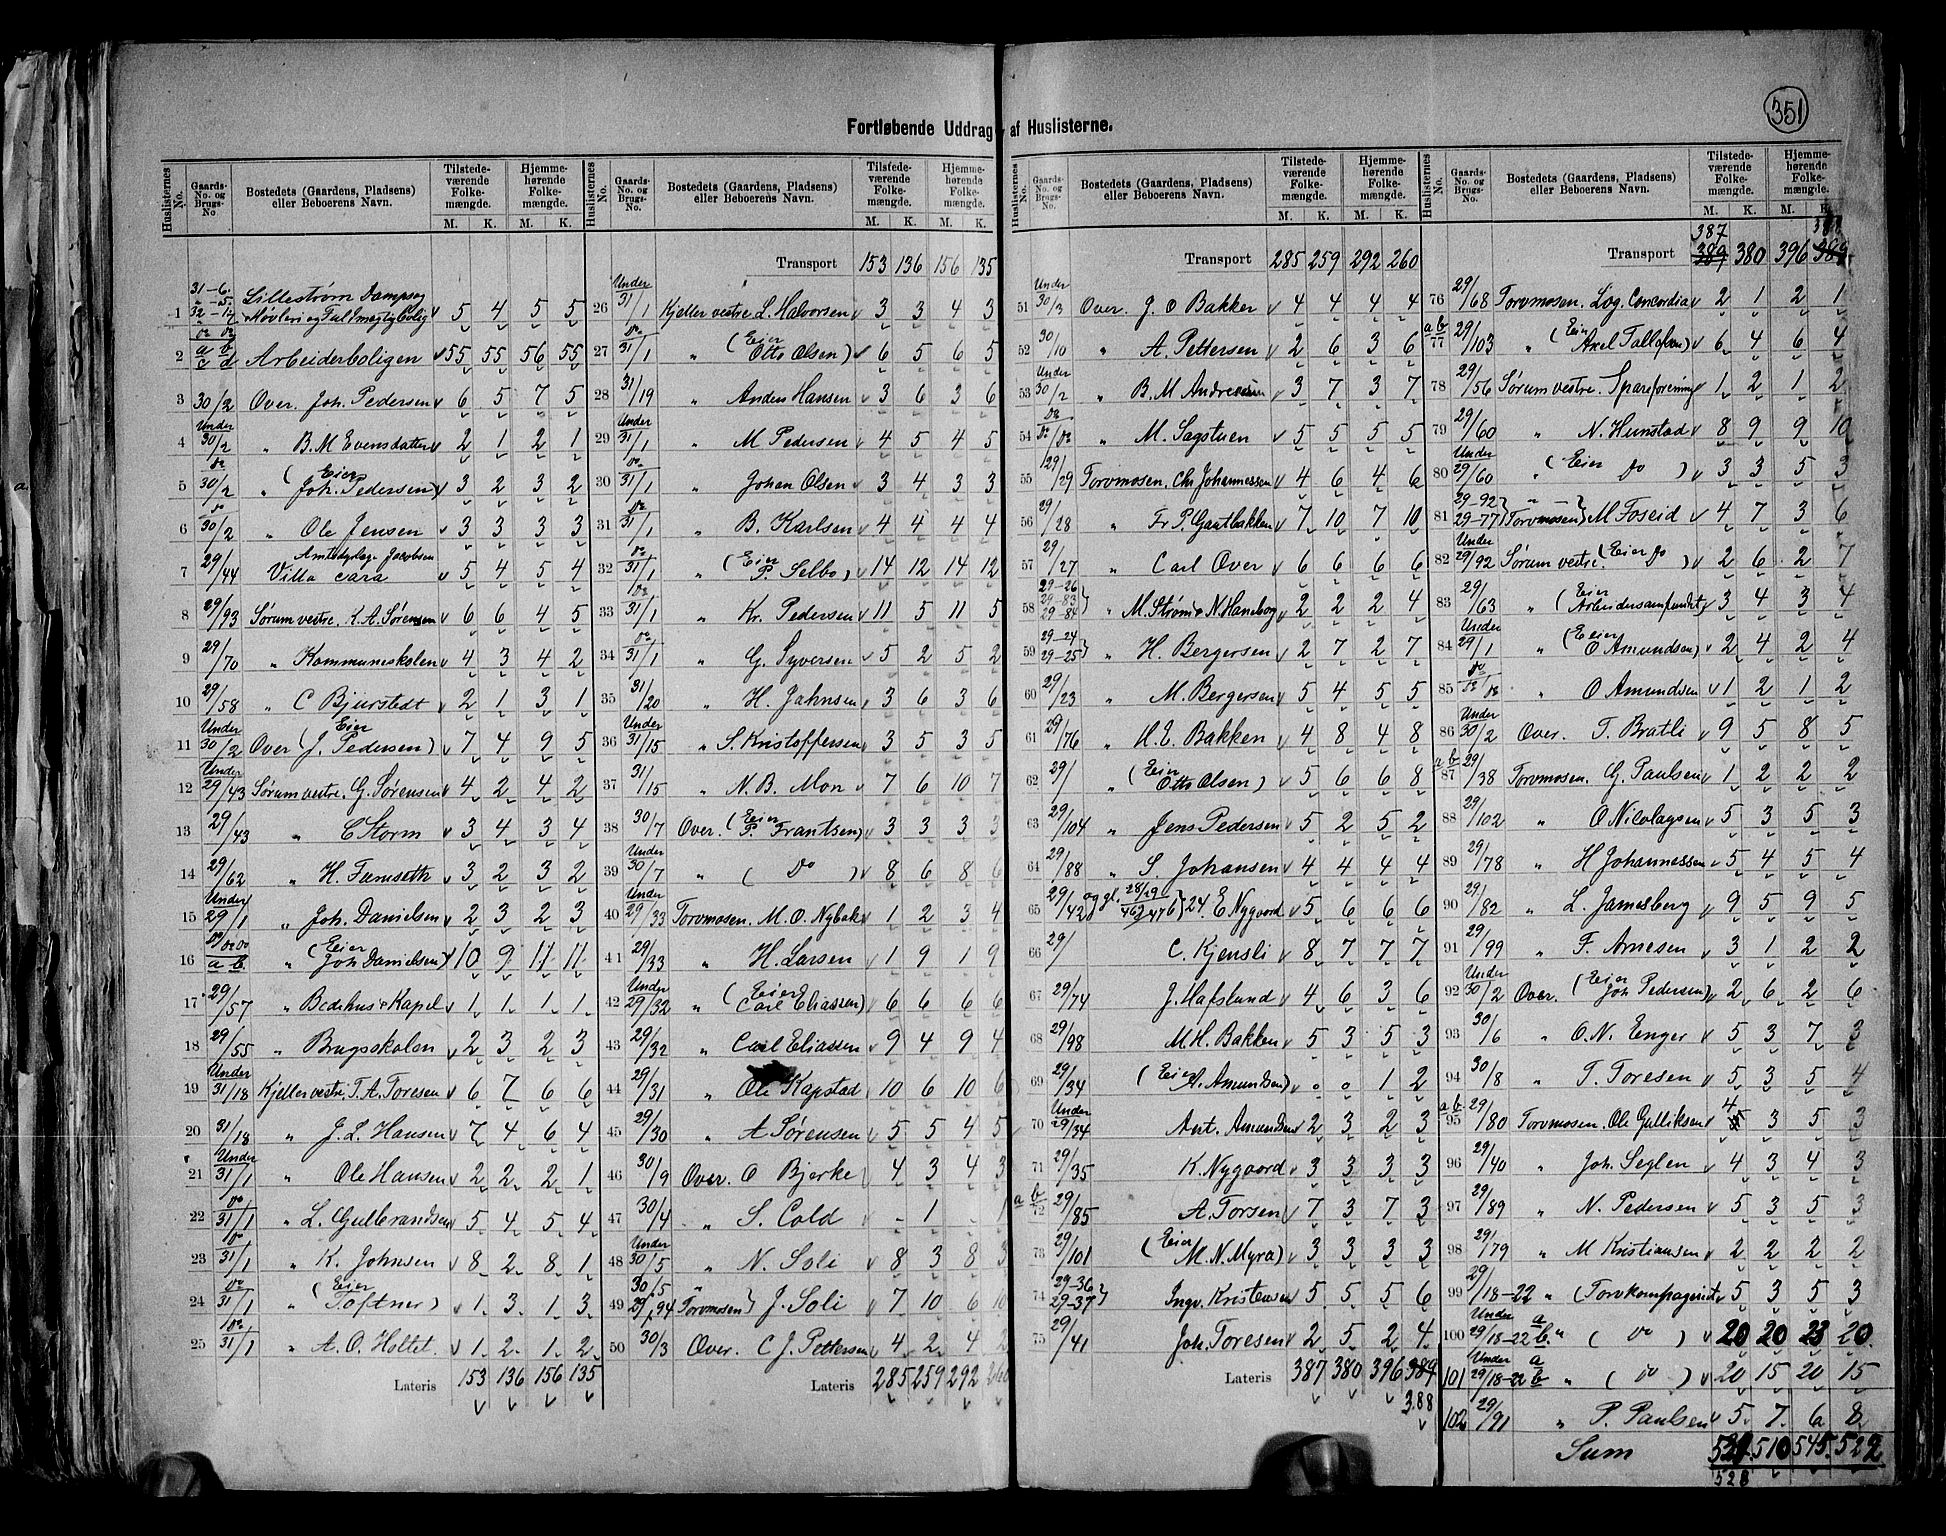 351
Fortløbende Uddrag af Huslisterne.
Huslisternes No. Gaards-No. og Brugs-No Bostedets (Gaardens, Pladsens) eller Beboerens Navn. Tilstedeværende Folkemængde. M. K. Hjemmehørende Folkemængde. M. K.
1 31-6. 32-17 Lillestrøm Dampsag Høvleri og 5 4 5 5
2 a b c d Arbeiderboligen 55 55 56 55
3 30/2 Over. Joh. Pedersen 6 5 7 5
4 Under 30/2 " B. M. Evensdatter 2 1 2 1
5 do 30/2 " (Eier Joh. Pedersen) 3 2 3 2
6 do 30/2 " Ole Jensen 3 3 3 3
7 29/44 Villa Jacobsen 5 4 5 4
8 29/93 Sørum vestre. K. A. Sørensen 6 6 4 5
9 29/70 " Kommuneskolen 4 3 4 2
10 29/58 " C Bjurstedt 2 1 3 1
11 Under 30/2 Over (Eier J. Pedersen) 7 4 9 5
12 Under 29/43 Sørum vestre. G. Sørensen 4 2 4 2
13 29/43 " C Storm 3 4 3 4
14 29/62 " H. 3 2 3 2
15 Under 29/1 " Joh. Danielsen 2 3 2 3
16 do do do a b. " (Eier Joh Danielsen) 10 9 11 11
17 29/57 " Bedehus & Kapel 1 1 1 1
18 29/55 " Brugsskolen 2 3 2 3
19 Under 31/18 Kjeller vestre, T. A. Toresen 6 7 6 6
20 31/18 " J. L. Hansen 7 4 6 4
21 Under 31/1 " Ole Hansen 2 2 2 1
22 do 31/1 " L. Gulbrandsen 5 4 5 4
23 do 31/1 " K. Johnsen 8 2 8 1
24 do 31/1 " (Eier Toftner) 1 3 1 3
25 do 31/1 " A. O. Holtet. 1 2 1 2
Lateris 153 136 156 135
Huslisternes No. Gaards-No. og Brugs-No. Bostedets (Gaardens, Pladsens) eller Beboerens Navn. Tilstedeværende Folkemængde. M. K. Hjemmehørende Folkemængde. M. K.
Transport 153 136 156 135
26 Under 31/1 Kjeller vestre. L. Halvorsen 3 3 4 3
27 do 31/1 " (Eier Otto Olsen) 6 5 6 5
28 31/19 " Anders Hansen 3 6 3 6
29 Under 31/1 " M Pedersen 4 5 4 5
30 do 31/1 " Johan Olsen 3 4 3 3
31 do 31/1 " B. Karlsen 4 4 4 4
32 do 31/1 " (Eier P. Selbo) 14 12 14 12
33 do 31/1 " Kr. Pedersen 11 5 11 5
34 do 31/1 " G. Syversen 5 2 5 2
35 31/20 " H. Jahnsen 3 6 3 6
36 Under 31/15 " S. Kristoffersen 3 5 3 5
37 31/15 " N. B. Mon 7 6 10 7
38 30/7 Over. (Eier P. Frantsen) 3 3 3 3
39 Under 30/7 " ( Do ) 8 6 8 6
40 Under 29/33 Torvmosen. M. O. Nybak 1 2 3 4
41 29/33 " H. Larsen 1 9 1 9
42 Under 29/32 " (Eier Carl Eliassen) 6 6 6 6
43 29/32 " Carl Eliassen 9 4 9 4
44 29/31 " Ole Kapstad 10 6 10 6
45 29/30 " A Sørensen 5 5 4 5
46 30/9 Over. O Bjerke 4 3 4 3
47 30/4 " S. Cold - 1 - 1
48 Under 30/5 " N. Soli 8 3 8 3
49 30/5 29/94 " Torvmosen} J. Soli 7 10 6 10
50 30/3 Over. C J. Pettersen 4 2 4 2
Lateris 285 259 292 260
Huslisternes No. Gaards-No. og Brugs-No. Bostedets (Gaardens, Pladsens) eller Beboerens Navn. Tilstedeværende Folkemængde. M. K. Hjemmehørende Folkemængde. M. K.
Transport 285 259 292 260
51 Under 30/3 Over. J. O Bakker 4 4 4 4
52 30/10 " A. Pettersen 2 6 3 6
53 Under 30/2 " B. M Andreassen 3 7 3 7
54 do do/do " M. Sagstuen 5 5 5 5
55 29/29 Torvmosen. Chr Johannessen 4 6 4 6
56 29/28 " Fr P. Gautbakken 7 10 7 10
57 29/27 " Carl Over 6 6 6 6
58 29-26 29-83 29-84 } " M. Strøm & N. Haneborg 2 2 2 4
59 29-24 29-25 } " H. Bergersen 2 7 2 7
60 29/23 " M. Bergersen 5 4 5 5
61 29/76 " H. E. Bakken 4 8 4 8
62 29/ " (Eier Otto Olsen) 5 6 6 8
63 29/104 " Jens Pedersen 5 2 5 2
64 29/88 " S. Johansen 4 4 4 4
65 29/42 og gl. 28/29 24. E Nygaard 5 6 6 6
66 29/ C. Kjensli 8 7 7 7
67 29/74 J. Hafslund 4 6 3 6
68 29/98 M. H. Bakken 5 3 5 3
69 29/34 (Eier A. Amundsen) 0 0 1 2
70 Under 29/34 Ant. Amundsen 2 3 2 3
71 29/35 K. Nygaard 3 3 3 3
a b 72 29/85 A. Torsen 7 3 7 3
73 29/101 (Eier M. N. Myra) 3 3 3 3
74 29-36 29-37 } Ingv. Kristensen 5 5 5 6
75 29/41 Joh. Toresen 2 5 2 4
Lateris 387 380 396 389
388
Huslisternes No. Gaards-No. og Brugs-No. Bostedets (Gaardens, Pladsens) eller Beboerens Navn. Tilstedeværende Folkemængde. M. K. Hjemmehørende Folkemængde. M. K.
387 388
Transport 389 380 396 389
76 29/68 Torvmosen. Log. Concordia 2 1 2 1
a b 77 29/103 " (Eier Axel Tallofsen) 6 4 6 4
78 29/56 Sørum vestre. Spareforening 1 2 1 2
79 29/60 " N. Hunstad 8 9 9 10
80 Under 29/60 " (Eier Do ) 3 3 5 3
81 29-92 29-77 } " Torvmosen } M Foseid 4 7 3 6
82 Under 29/92 Sørum vestre. (Eier Do ) 2 6 2 7
83 29/63 " (Eier Arbeidersamfundet) 3 4 3 4
84 Under 29/1 " (Eier O Amundsen) 2 4 2 4
85 do do/do " O Amundsen 1 2 1 2
86 Under 30/2 Over. T. Bratli 9 5 8 5
a b 87 29/38 Torvmosen. G. Paulsen 1 2 2 2
88 29/102 " O Nicolaysen 5 3 5 3
89 29/78 " H Johannessen 5 4 5 4
90 29/82 " L. Jamesberg 9 5 9 5
91 29/99 " F. Arnesen 3 1 2 2
92 Under 30/2 Over. (Eier Joh Pedersen) 2 6 2 6
93 30/6 " O. N. Enger 5 3 7 3
94 30/8 " T. Toresen 5 3 5 4
a b 95 29/80 Torvmosen. Ole Gulliksen 4 5 3 5 3
96 29/40 " Joh. Seglen 4 3 4 3
97 29/89 " N. Pedersen 5 3 5 3
98 29/79 " M Kristiansen 2 2 2 2
99 29/18-22 " (Torvkompagniet 5 3 5 3
100 Under 29/18-22 a b " ( Do ) 20 20 23 20
101 Under 29/18-22 a b " ( Do ) 20 15 20 15
102 29/91 " P. Paulsen 5 7 6 8
Sum 510 545 522
528